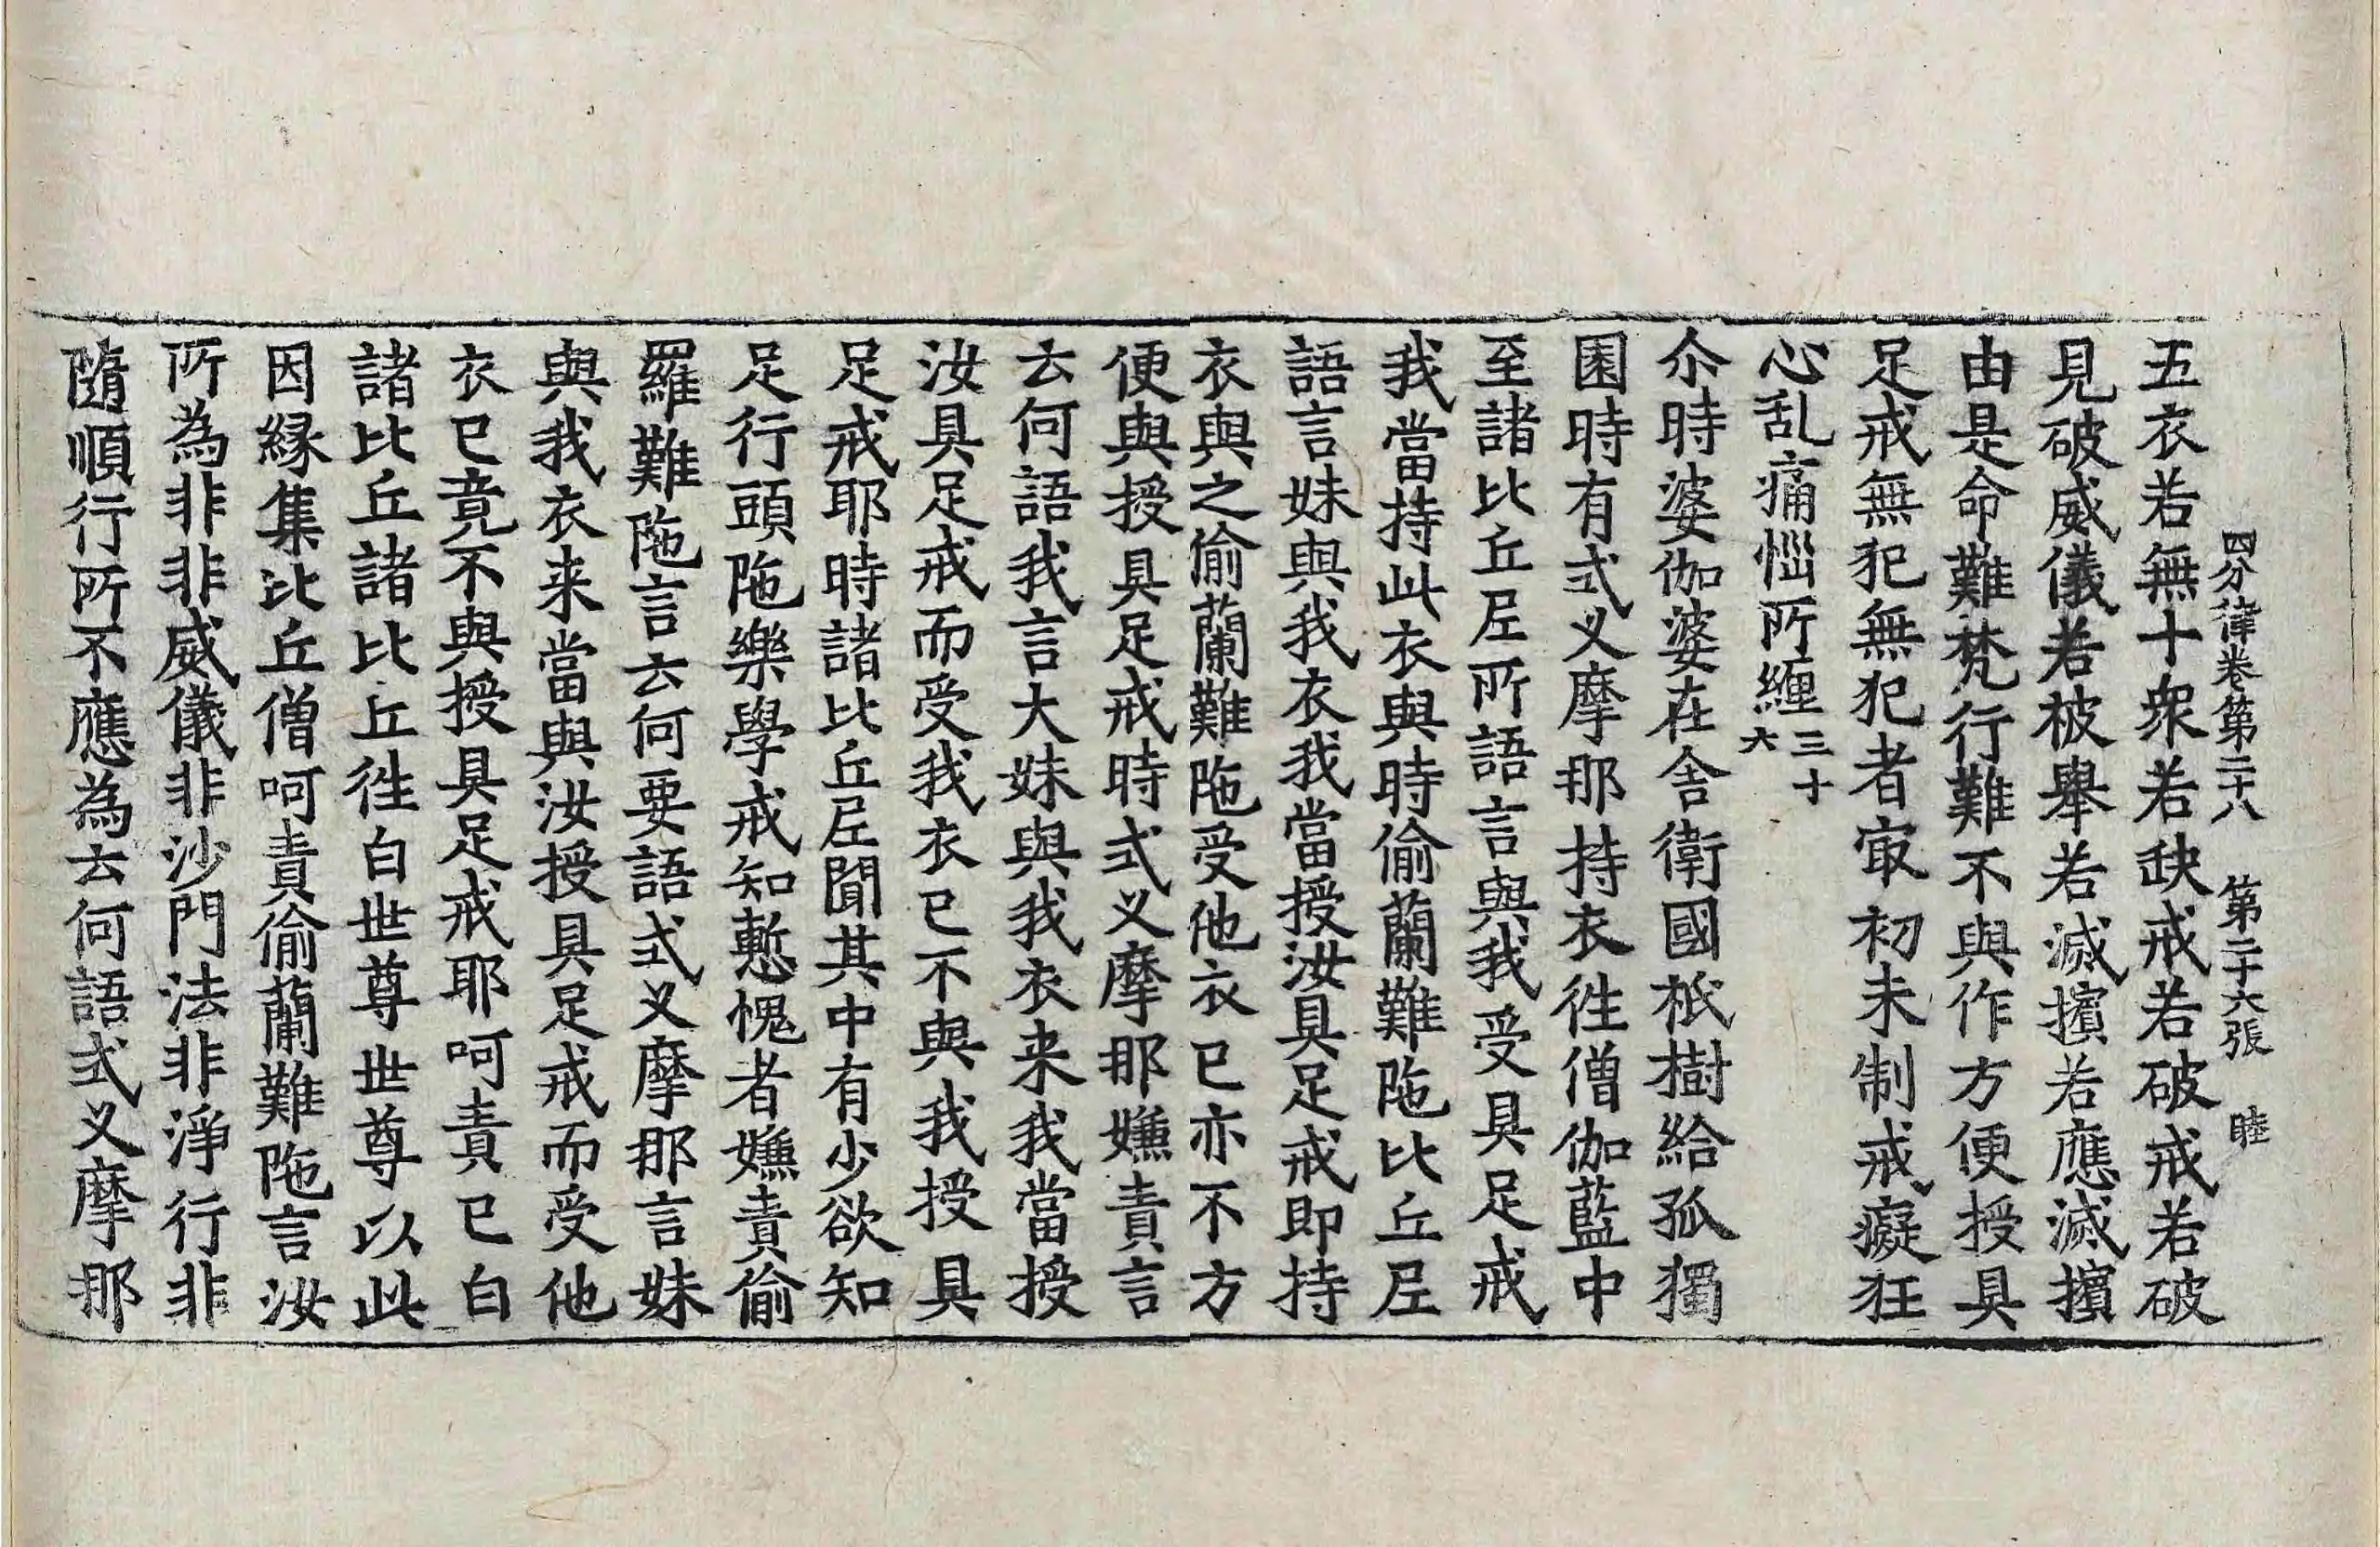 四分律卷第二十八 第二十六張 睦
五衣若無十衆若缺戒若破戒若破
見破威儀若被舉若滅擯若應滅擯
由是命難梵行難不與作方便授具
足戒無犯無犯者㝡初未制戒癡狂
心乱痛惱所纏三十六
尒時婆伽婆在舍衛國祇樹給孤獨
園時有式叉摩那持衣往僧伽藍中
至諸比丘尼所語言與我受具足戒
我當持此衣與時偷蘭難陁比丘尼
語言妹與我衣我當授汝具足戒即持
衣與之偷蘭難陁受他衣已亦不方
便與授具足戒時式叉摩那嫌責言
云何語我言大妹與我衣来我當授
汝具足戒而受我衣已不與我授具
足戒耶時諸比丘尼聞其中有少欲知
足行頭陁樂學戒知慙愧者嫌責偷
羅難陁言云何要語式叉摩那言妹
與我衣来當與汝授具足戒而受他
衣已竟不與授具足戒耶呵責已白
諸比丘諸比丘往白世尊世尊以此
因緣集比丘僧呵責偷蘭難陁言汝
所為非非威儀非沙門法非淨行非
隨順行所不應為云何語式叉摩那